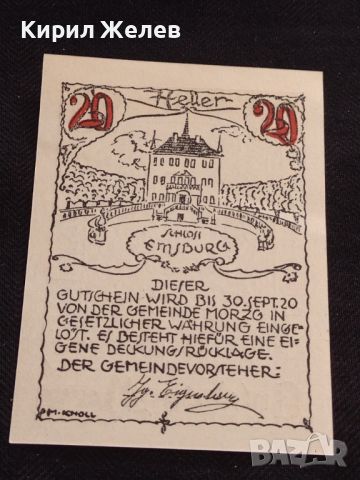 Кирил Желев
20 Heller 20
SCHLOSS
EMSBURG
DIESER
GUTSCHEIN WIRD BIS 30.SEPT.20
VON DER GEMEINDE MORZG IN
GESETZLICHER WÄHRUNG EINGE-
LÖST. ES BESTEHT HIEFÜR EINE EI-
GENE DECKUNGSRÜCKLAGE.
DER GEMEINDEVORSTEHER:
M. KNOLL
BAZAR